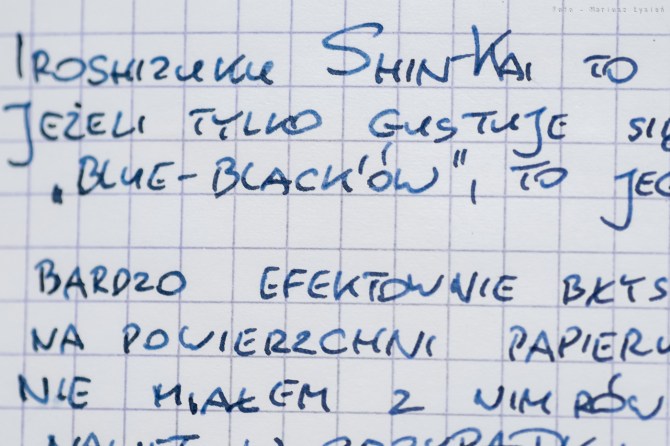 Foto - Mariusz Łysień
IROSHIZUKU SHIN-KAI TO
JEŻELI TYLKO GUSTUJE SIĘ
„BLUE-BLACK'ÓW", TO JED
BARDZO EFEKTOWNIE BŁYS
NA POWIERZCHNI PAPIERU
NIE MIAŁEM Z NIM RÓW
NAWET W